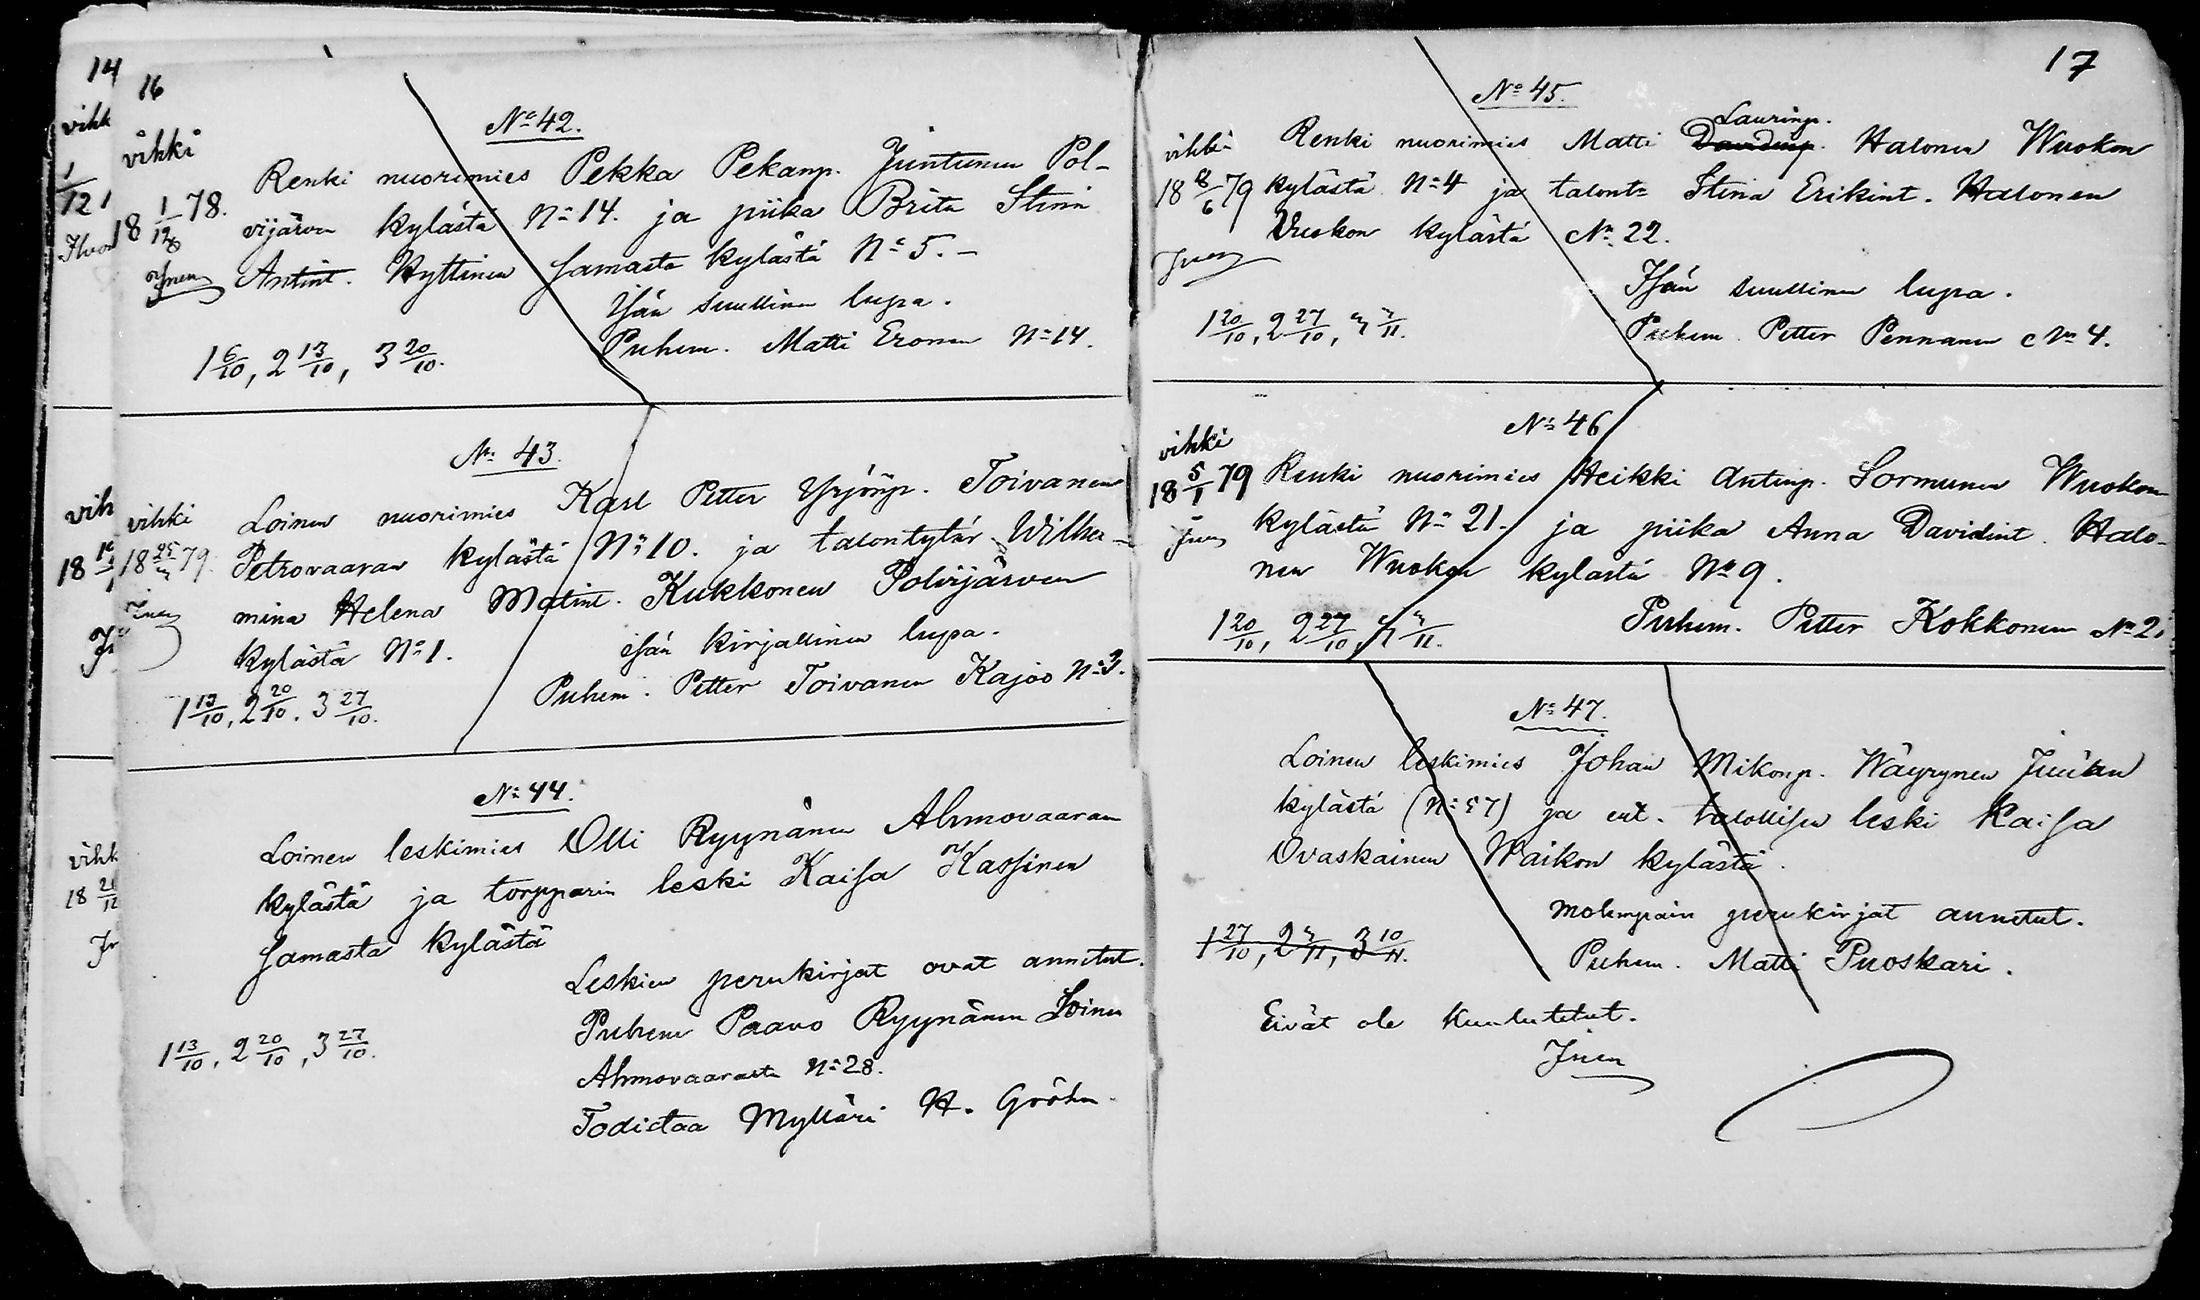 14
vihk
1/12 1
16
vihki
18 1/12 78.
Jnen
No 42.
Renki nuorimies Pekka Pekanp. Juntunen Pol-
vijärven kylästä No 14. ja piika Brita Stina
Antint. Hyttinen samasta kylästä No 5. -
Isän suullinen lupa.
Puhem. Matti Eronen No 14.
1 6/10, 2 13/10, 3 20/10.
No 43.
vih
18
vihki
18 25/3 79.
Jnen
Loinen nuorimies Karl Petter Yrjönp. Toivanen
Petrovaaran kylästä No 10. ja talontytär Wilhel-
mina Helena Matint. Kukkonen Polvijärven
kylästä No 1.
isän kirjallinen lupa.
Puhem. Petter Toivanen Kajoo No 3.
1 13/10, 2 20/10. 3 27/10.
No 44.
vihk
18 21/12
Loinen leskimies Olli Ryynänen Ahmovaaran
kylästä ja torpparin leski Kaisa Kassinen
samasta kylästä
Leskien perukirjat ovat annetut.
Puhem Paavo Ryynänen Loinen
Ahmovaarasta No 28.
Todistaa Mylläri H. Gröhn.
1 13/10, 2 20/10, 3 27/10.
17
No 45.
vihki
18 8/6 79
Jnen
Laurinp.
Renki nuorimies Matti Davidinp. Halonen Wuokon
kylästä No 4 ja talont= Stina Erikint. Halonen
Vuokon kylästä No 22.
Isän suullinen lupa.
Puhem Petter Pennanen No 4.
1 20/10, 2 27/10, 3 3/11.
No 46
vihki
18 5/1 79
Jnen
Renki nuorimies Heikki Antinp. Sormunen Wuokon
kylästä No 21. ja piika Anna Davidint. Halo-
nen Wuokon kylästä No 9.
Puhem. Petter Kokkonen No 21
1 20/10, 2 27/10, 3 3/11.
No 47.
Loinen leskimies Johan Mikonp. Wäyrynen Juuan
kylästä (No 57) ja ent. talollisen leski Kaisa
Ovaskainen Waikon kylästä.
Molempain perukirjat annetut.
Puhem. Matti Puoskari.
1 27/10, 2 3/11, 3 10/11.
Eivät ole kuulutetut.
Jnen